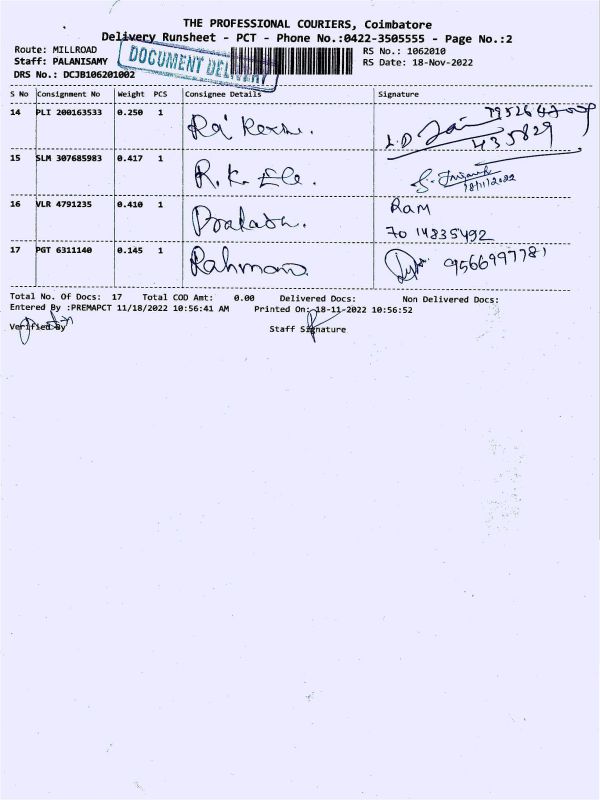 THE PROFESSIONAL COURIERS, Coimbatore
Delivery Runsheet - PCT - Phone No.:0422-3505555 - Page No.:2
Route: MILLROAD
RS No.: 1062010
Staff: PALANISAMY
RS Date: 18-Nov-2022
DOCUMENT DELIVERY
DRS No.: DCJB106201002
S No Consignment No Weight PCS Consignee Details Signature
14 PLI 200163533 0.250 1
435829
15 SLM 307685983 0.417 1 R.K. Ele.
18/11/2022
16 VLR 4791235 0.410 1 Prakash. RAM
70 14835492
17 PGT 6311140 0.145 1 Rahman 9566997781
Total No. Of Docs: 17 Total COD Amt: 0.00 Delivered Docs: Non Delivered Docs:
Entered By :PREMAPCT 11/18/2022 10:56:41 AM Printed On: 18-11-2022 10:56:52
Verified By Staff Signature